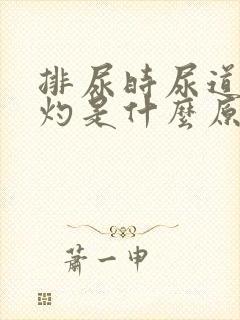 排尿时尿道
灼是什麼原
萧一申